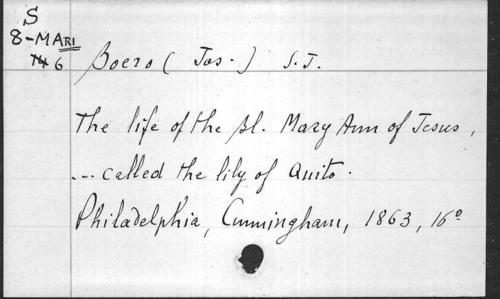 S
8-MARI
14 6
Boero ( Jos. ) S.J.
The life of the bl. Mary Ann of Jesus,
... called the lily of Quito.
Philadelphia, Cunningham, 1863, 16º